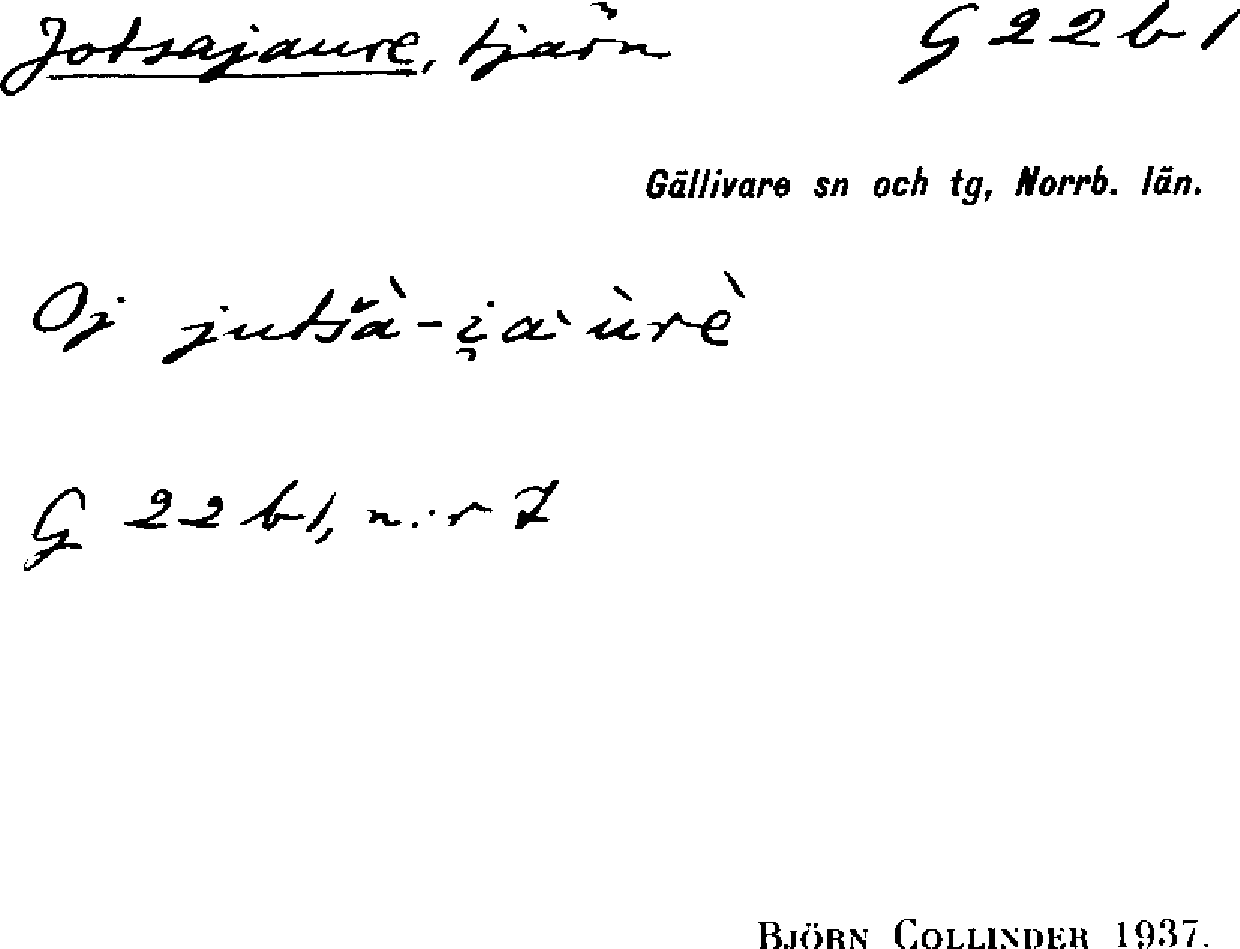 Jotsajaure, tjärn G 22 b 1
Gällivare sn och tg, Norrb. län.
Oj jutšà-i̯a`ùrè
G 22 b 1, n:r 7
BJÖRN COLLINDER 1937.